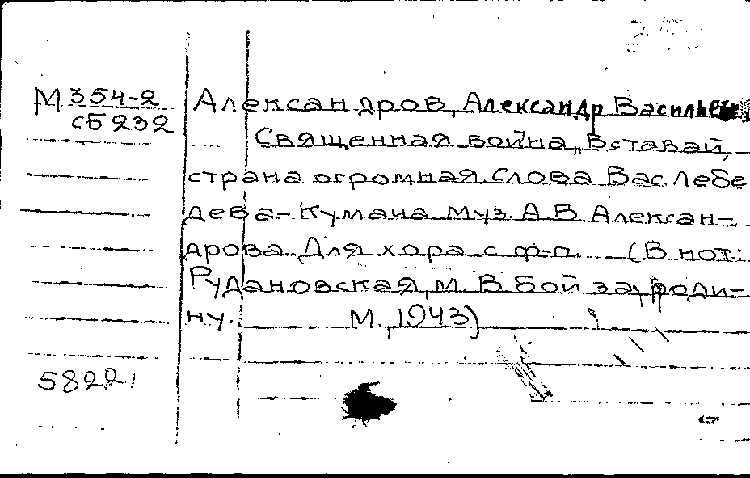 М 354-2
сб 232
Александров, Александр Василье
Священная война „Вставай,
страна огромная. Слова Вас. Лебе
дева-Кумача Муз. А В Алексан-
дрова Для хора с ф-п. (В нот.:
Рудановская, М. В бой за роди-
ну. М., 1943)
58221